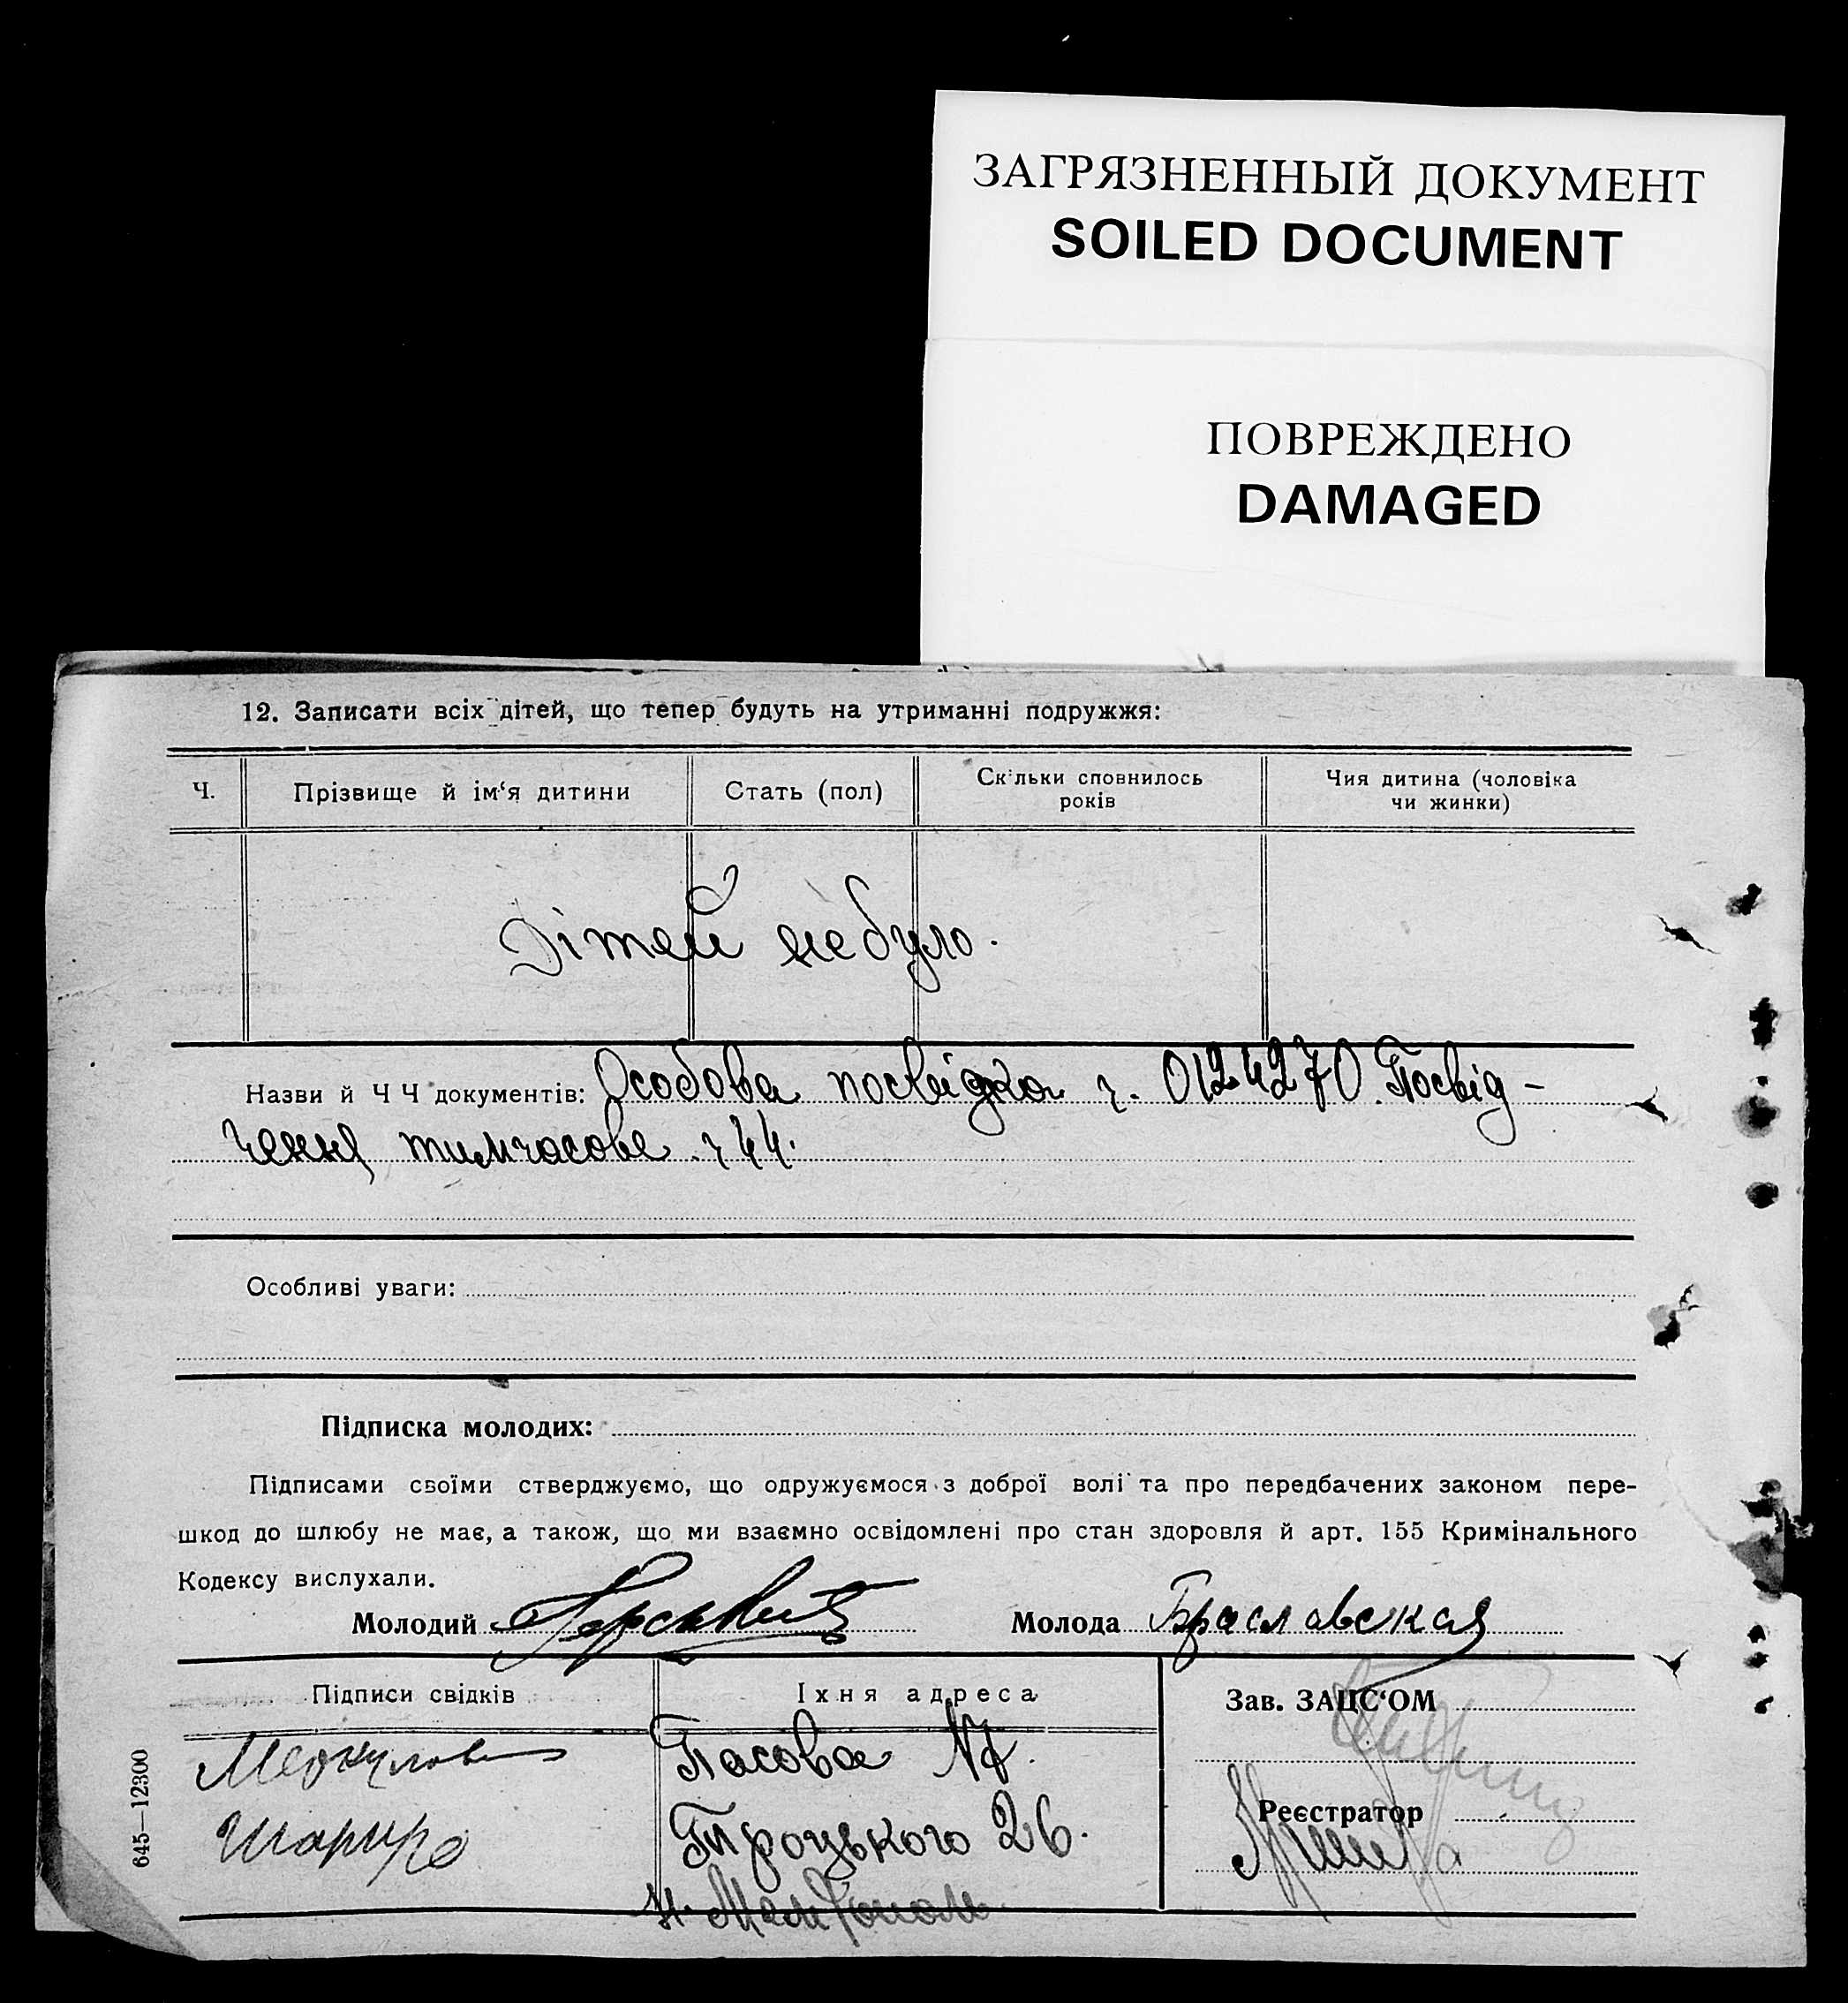 ЗАГРЯЗНЕННЫЙ ДОКУМЕНТ
SOILED DOCUMENT
ПОВРЕЖДЕНО
DAMAGED
12. Записати всіх дітей, що тепер будуть на утриманні подружжя:
Ч.
Прізвище й ім‘я дитини
Стать (пол)
Скільки сповнилось
років
Чия дитина (чоловіка
чи жинки)
Дітей небуло.
Назви й Ч Ч документів: Особова посвідка ч. 0124270. Посвід-
чення тимчасове ч 44.
Особливі уваги:
Підписка молодих:
Підписами своїми стверджуємо, що одружуємося з доброї волі та про передбачених законом пере-
шкод до шлюбу не має, а також, що ми взаємно освідомлені про стан здоровля й арт. 155 Кримінального
Кодексу вислухали.
Молодий
Молода Браславская
Підписи свідків
Їхня адреса
Зав. ЗАЦС‘ОМ
Пасова
Шапиро
Троцького 26.
Реєстратор
645—12300